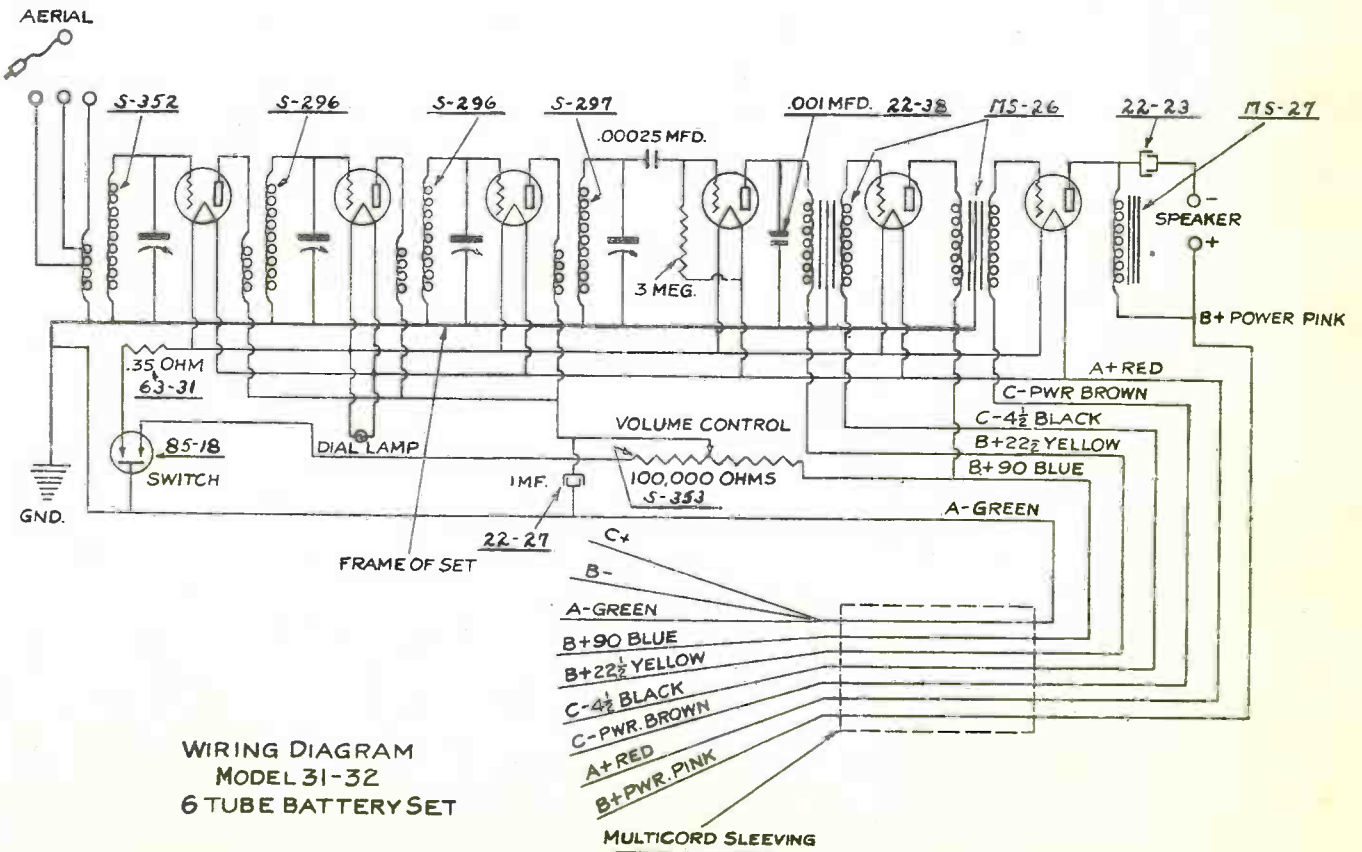 AERIAL
S-352
S-296
S-296
S-297
.00025 MFD.
.001 MFD. 22-38
MS-26
22-23
MS-27
3 MEG.
-
SPEAKER
+
B+ POWER PINK
.35 OHM
63-31
A+RED
C-PWR BROWN
C-4½ BLACK
B+22½ YELLOW
B+90 BLUE
VOLUME CONTROL
100,000 OHMS
S-353
85-18
SWITCH
DIAL LAMP
1MF.
22-27
GND.
FRAME OF SET
A-GREEN
C+
B-
A-GREEN
B+90 BLUE
B+22½ YELLOW
C-4½ BLACK
C-PWR. BROWN
A+RED
B+PWR. PINK
MULTICORD SLEEVING
WIRING DIAGRAM
MODEL 31-32
6 TUBE BATTERY SET